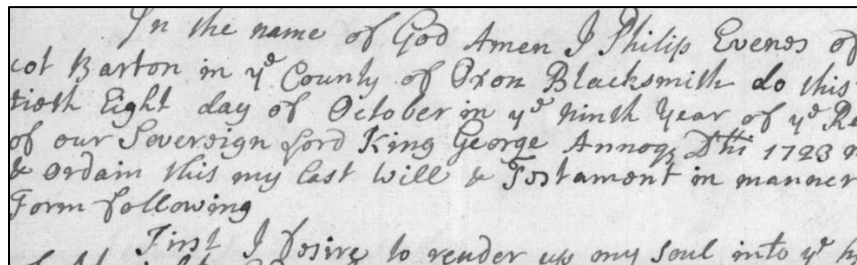 In the name of God Amen I Philip Evenes of
cot Barton in yᵉ County of Oxon Blacksmith do this
tieth Eight day of October in yᵉ Ninth Year of yᵉ Re
of our Sovereign Lord King George Annoq Dni 1723
& Ordain this my Last Will & Testament in manner
Form following
First I Desire to render up my soul into yᵉ h